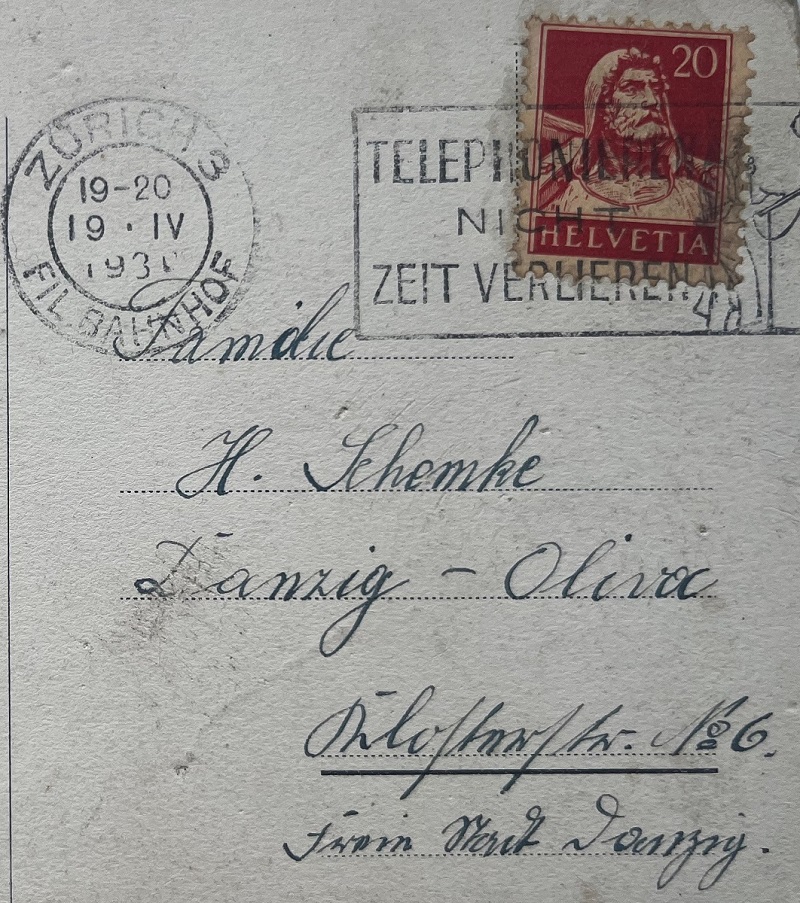 20
HELVETIA
ZÜRICH 3
19-20
19 · IV
FIL. BAHNHOF
TELEPHONIEREN
NICHT
ZEIT VERLIEREN
Familie
H. Schemke
Danzig - Oliva
Klosterstr. No 6.
Freie Stadt Danzig.